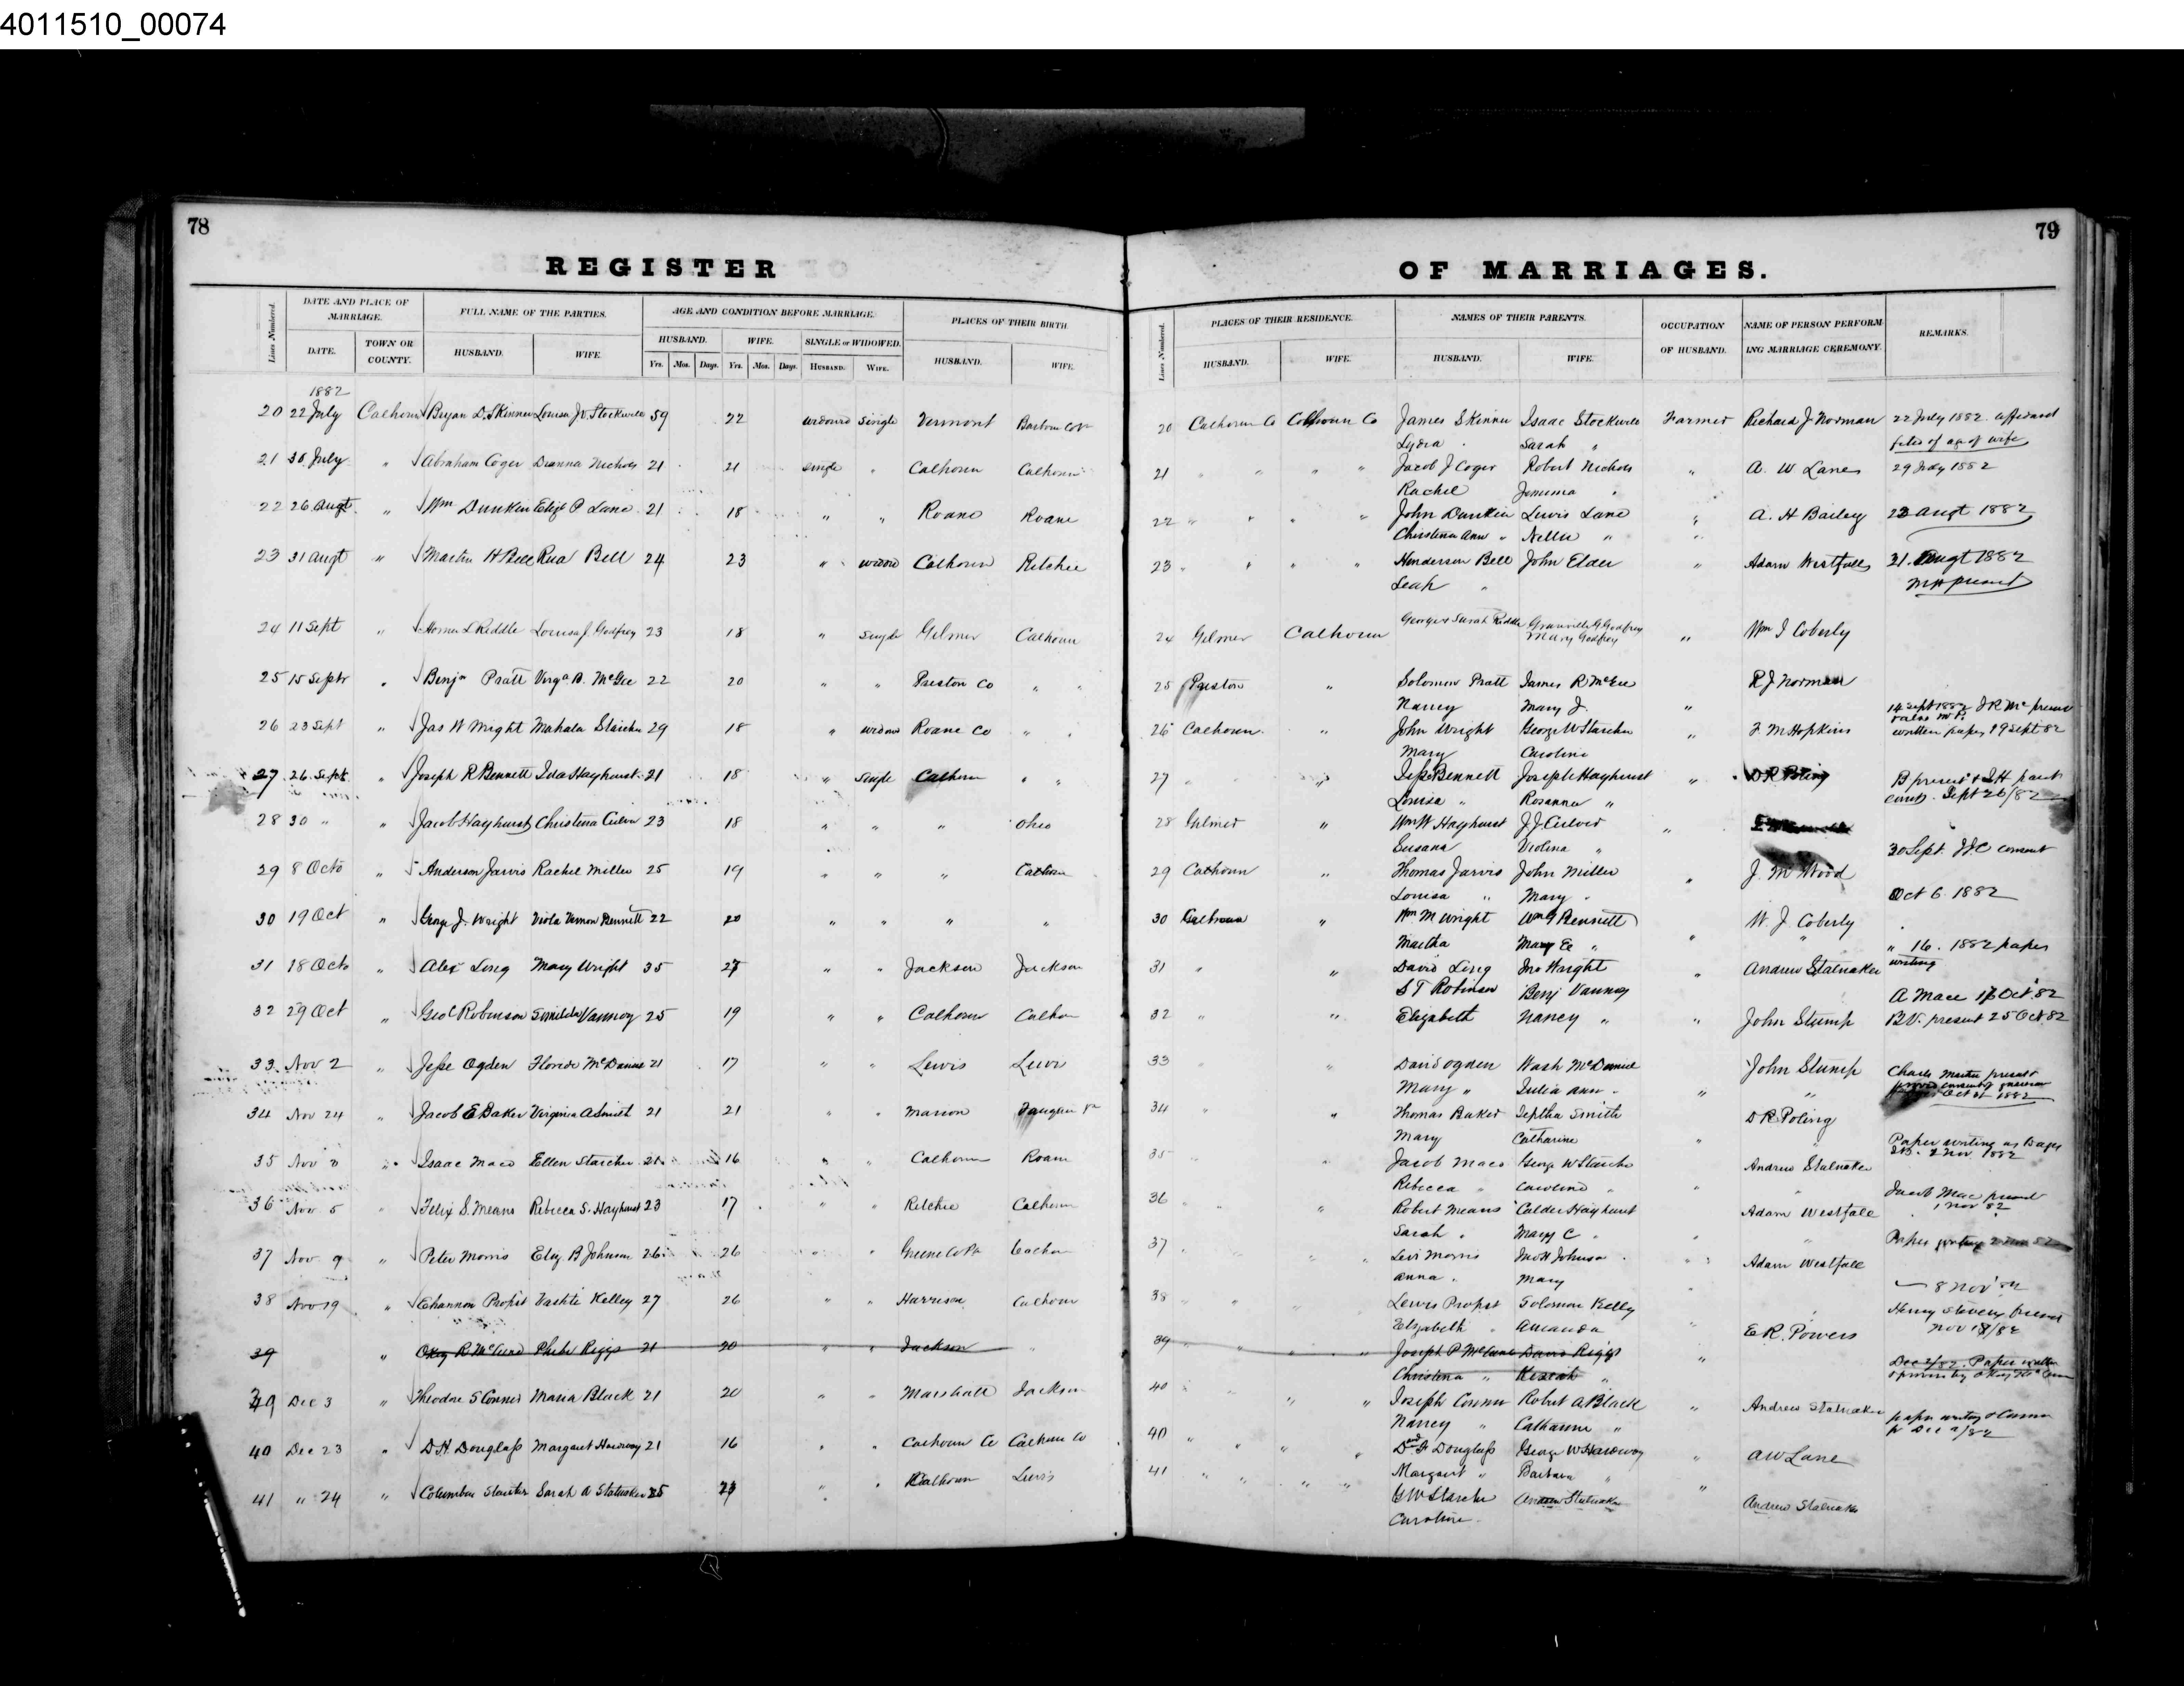 4011510_00074
78
79
REGISTER
OF MARRIAGES.
Lines Numbered.
DATE AND PLACE OF MARRIAGE.
FULL NAME OF THE PARTIES.
AGE AND CONDITION BEFORE MARRIAGE.
PLACES OF THEIR BIRTH
DATE.
TOWN OR COUNTY.
HUSBAND.
WIFE.
HUSBAND.
WIFE.
SINGLE or WIDOWED.
HUSBAND.
WIFE.
Yrs. Mos. Days. Yrs. Mos. Days. HUSBAND. WIFE.
Lines Numbered.
PLACES OF THEIR RESIDENCE.
NAMES OF THEIR PARENTS.
OCCUPATION OF HUSBAND.
NAME OF PERSON PERFORMING MARRIAGE CEREMONY.
REMARKS.
HUSBAND.
WIFE.
HUSBAND.
WIFE.
1882
20 22 July Calhoun Bryan D. Skinner Louisa J.V. Stockwell 59 22 widowed Single Vermont
21 30 July " Abraham Coger Dianna Nichols 21 21 single " Calhoun Calhoun
22 26 Augt " Wm Dunkin Eliz P Lane 21 18 " " Roane Roane
23 31 Augt " Martin H Bell Rua Bell 24 23 " widow Calhoun Ritchie
24 11 Sept " Homer L Riddle Louisa J. Godfrey 23 18 " Single Gilmer Calhoun
25 15 Septr " Benjn Pratt Virga A. McGee 22 20 " " Preston Co " "
26 23 Sept " Jas W Wright Mahala Starcher 29 18 " widow Roane Co " "
27 26 Sept " Joseph R Bennett Ida Hayhurst 21 18 " Single Calhoun " "
28 30 " " Jacob Hayhurst Christena Culver 23 18 " " " Ohio
29 8 Octo " Anderson Jarvis Rachel Miller 25 19 " " " Calhoun
30 19 Oct " George J. Wright Viola Vernon Bennett 22 20 " " " "
31 18 Octo " Alex Ling Mary Wright 35 27 " " Jackson Jackson
32 29 Oct " Geo C Robinson Vannoy 25 19 " " Calhoun Calhoun
33 Nov 2 " Jesse Ogden McDaniel 21 17 " " Lewis Lewis
34 Nov 24 " Jacob E Baker Virginia A Smith 21 21 " " Marion
35 Nov " Isaac Mace Ellen Starcher 21 16 " " Calhoun Roane
36 Nov 5 " Felix S. Means Rebecca S. Hayhurst 23 17 Ritchie Calhoun
37 Nov 9 " Peter Morris Eliz. B Johnson 26 26 " Greene Co Pa Calhoun
38 Nov 19 " Channon Propst Vashti Kelley 27 26 " " Harrison Calhoun
39 " Okey R McCune Phebe Riggs 21 20 " " Jackson
39 Dec 3 " Theodore S Conner Maria Black 21 20 " " Marshall Jackson
40 Dec 23 " D.H. Douglass Margaret Hardway 21 16 " " Calhoun Co Calhoun Co
41 " 24 " Columbus Starcher Sarah A Stalnaker 25 " " Calhoun Lewis
20 Calhoun Co Calhoun Co James Skinner Isaac Stockwell Farmer Richard J Norman 22 July 1882 affidavit
Lydia " Sarah " filed of age of wife
21 " " " " Jacob J Coger Robert Nichols " A. W Lane 29 July 1882
Rachel Jemima "
22 " " " " John Dunkin Lewis Lane " A. H Bailey 23 Augt 1882
Christena Ann " Nellie "
23 " " " " Henderson Bell John Elder " Adam Westfall 31 Augt 1882
Leah " MH present
24 Gilmer Calhoun George & Sarah Riddle Granville G Godfrey " Wm J Coberly
Mary Godfrey
25 Preston " Solomon Pratt James R McGee R J Norman
Nancy Mary J. " 14 Sept 1882 J R Mc present
26 Calhoun " John Wright George W Starcher " F. M Hopkins written paper 19 Sept 82
Mary Caroline
27 " " Jesse Bennett Joseph Hayhurst " D R Poling B present & J H
Louisa " Rosanna " Sept 26/82
28 Gilmer " Wm W Hayhurst J. J. Culver "
Susana Violena " 30 Sept. J J C consent
29 Calhoun " Thomas Jarvis John Miller " J. M Wood
Louisa " Mary " Oct 6 1882
30 Calhoun " Wm M Wright Wm G Bennett W. J. Coberly
Martha Mary E " " " 16. 1882 paper
writing
31 " " David Ling Jno Wright " Andrew Stalnaker
S T Robinson Benj Vannoy A Mace Oct 82
32 " " Elizabeth Nancy " " John Stump B.V. present 25 Oct 82
33 " David Ogden Wash McDaniel John Stump Charles Martin present
Mary " Julia Ann " " " Oct 31 1882
34 " " Thomas Baker Jeptha Smith D R Poling
Mary Catharine " " Paper writing
35 " " Jacob Mace George W Starcher Andrew Stalnaker 2 Nov. 1882
Rebecca " Caroline " " "
36 " " Robert Means Calder Hayhurst Adam Westfall Jacob Mace present
1 Nov 82
Sarah " Mary C " " " Paper writing
37 " " " Levi Morris Johnson " Adam Westfall
Anna " Mary 8 Nov 82
38 " " " Lewis Propst Solomon Kelly Henry Stevens present
Elizabeth " Amanda " E R. Powers Nov 18/82
39 " " " " Joseph P McCune David Riggs
Christena " Keziah " " Dec 2/82. Paper
40 " " " Joseph Conner Robert A Black " Andrew Stalnaker
Nancy " Catharine " paper writing
40 " " " " Douglass George W Hardway " A W Lane
Margaret " Barbara "
41 " " " " G W Starcher Andrew Stalnaker " Andrew Stalnaker
Caroline